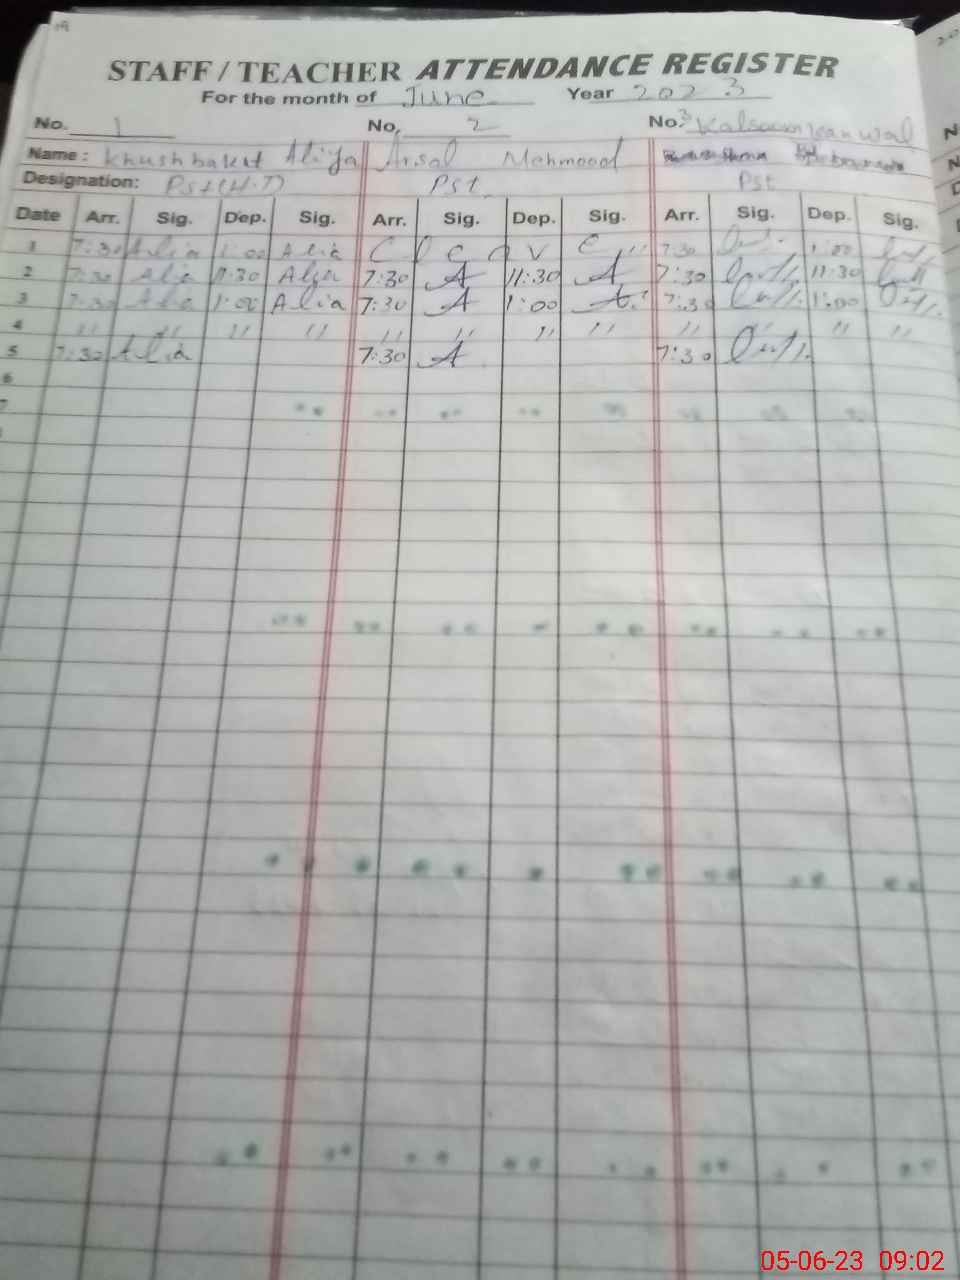 19
STAFF / TEACHER ATTENDANCE REGISTER
For the month of June Year 2023
No. 1 No. 2 No. 3 Kalsoom kanwal
Name: Khushbakht Aliya Arsal Mehmood
Designation: Pst (H.T) Pst Pst
Date Arr. Sig. Dep. Sig. Arr. Sig. Dep. Sig. Arr. Sig. Dep. Sig.
1 7:30 Alia 1:00 Alia 7:30 1:00
2 7:30 Alia 11:30 Alia 7:30 A 11:30 A 7:30 11:30
3 7:30 Alia 1:00 Alia 7:30 A 1:00 A 7:30 1:00
4 " " " " " " " " " " " "
5 7:30 Alia 7:30 A 7:30
6
7
05-06-23 09:02